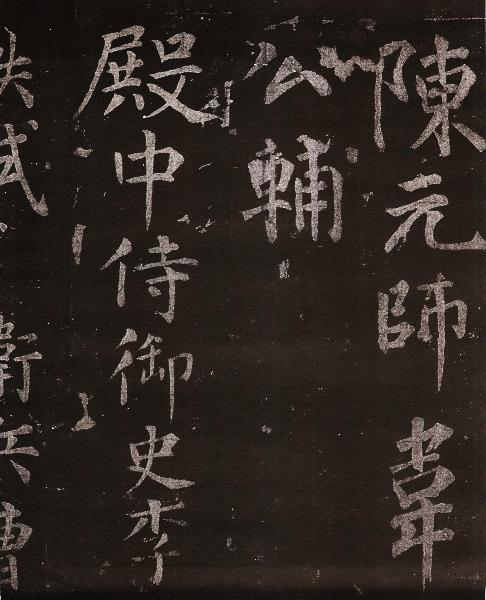 陳元師韋
公輔
殿中侍御史李
軼武
衛兵曹